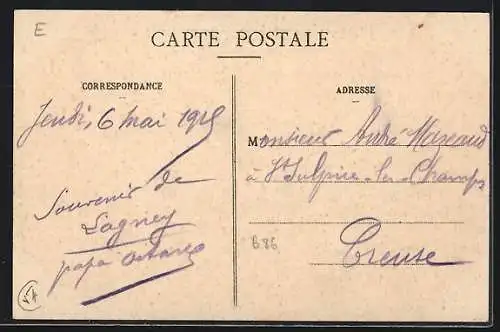 E
CARTE POSTALE
CORRESPONDANCE
ADRESSE
Jeudi, 6 mai 1915
Souvenir de
Lagney
papa
Monsieur André Mazeaud
à St Sulpice-les-Champs
Creuse
B86